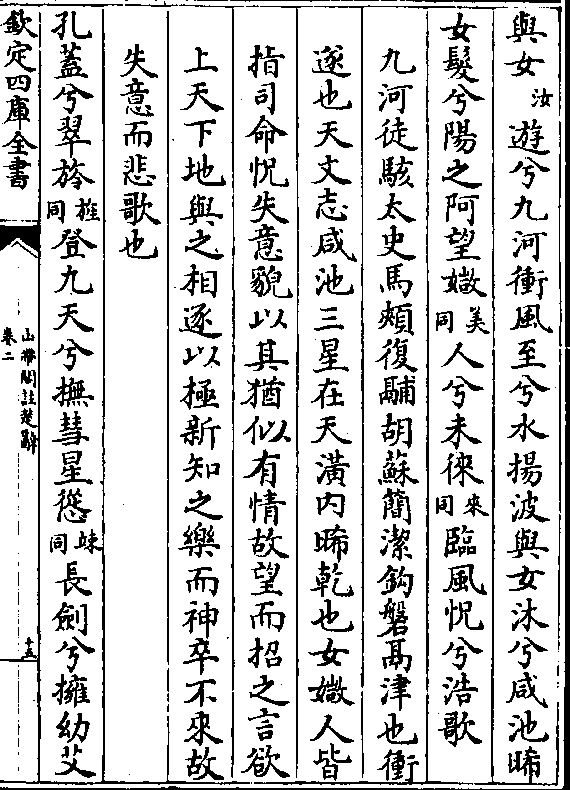 與女汝遊兮九河衝風至兮水揚波與女沐兮咸池晞
女髮兮陽之阿望媺美同人兮未徠來同臨風怳兮浩歌
九河徒駭太史馬頰復鬴胡蘇簡潔鈎磐鬲津也衝
遂也天文志咸池三星在天潢内晞乾也女媺人皆
指司命怳失意貌以其猶似有情故望而招之言欲
上天下地與之相逐以極新知之樂而神卒不來故
失意而悲歌也
孔蓋兮翠旍旌同登九天兮撫彗星慫竦同長劍兮擁幼艾
欽定四庫全書
山帶閣註楚辭
卷二
十五